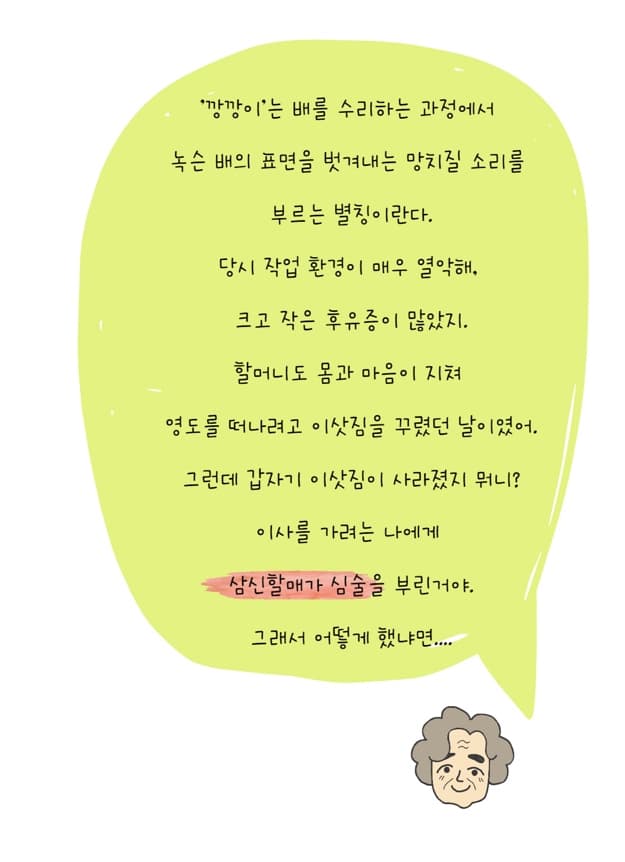 '깡깡이'는 배를 수리하는 과정에서
녹슨 배의 표면을 벗겨내는 망치질 소리를
부르는 별칭이란다.
당시 작업 환경이 매우 열악해,
크고 작은 후유증이 많았지.
할머니도 몸과 마음이 지쳐
영도를 떠나려고 이삿짐을 꾸렸던 날이였어.
그런데 갑자기 이삿짐이 사라졌지 뭐니?
이사를 가려는 나에게
삼신할매가 심술을 부린거야.
그래서 어떻게 했냐면....